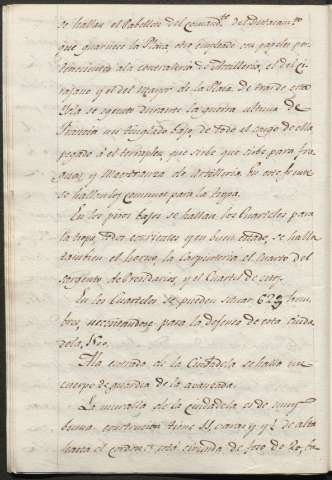 se hallan el Pabellon del Comand.te del Destacam.to
que guarnece la Plaza, otro empleado con papeles per-
tenecientes a la contraloria de Artilleria, el del Ci-
rujano y el del Mayor de la Plaza, detras de esta
se agrego durante la guerra ultima de
Francia un tinglado bajo, de todo el largo de ella
pegado á el terraplen que sirbe que sirbe para fra-
guas, y Maestranza de Artilleria. En este frente
se hallan los comunes para la tropa.
En los pisos bajos se hallan los Cuarteles para
la tropa, todos corrientes y en buen estado, se halla
tambien el horno la carpinteria el Cuarto del
sargento de Brendarios, y el Cuartel de
En los Cuarteles se pueden situar 623 hom-
bres, necesitandose para la defensa de esta Ciuda-
dela, 1500.
Ala entrada de la Ciudadela se halla un
cuerpo de guardia de la avanzada.
La muralla de la ciudadela es de muy
buena construcion tiene 11 varas y ½ de alto
hasta el cordon: está circunda de foso de 20, ba-